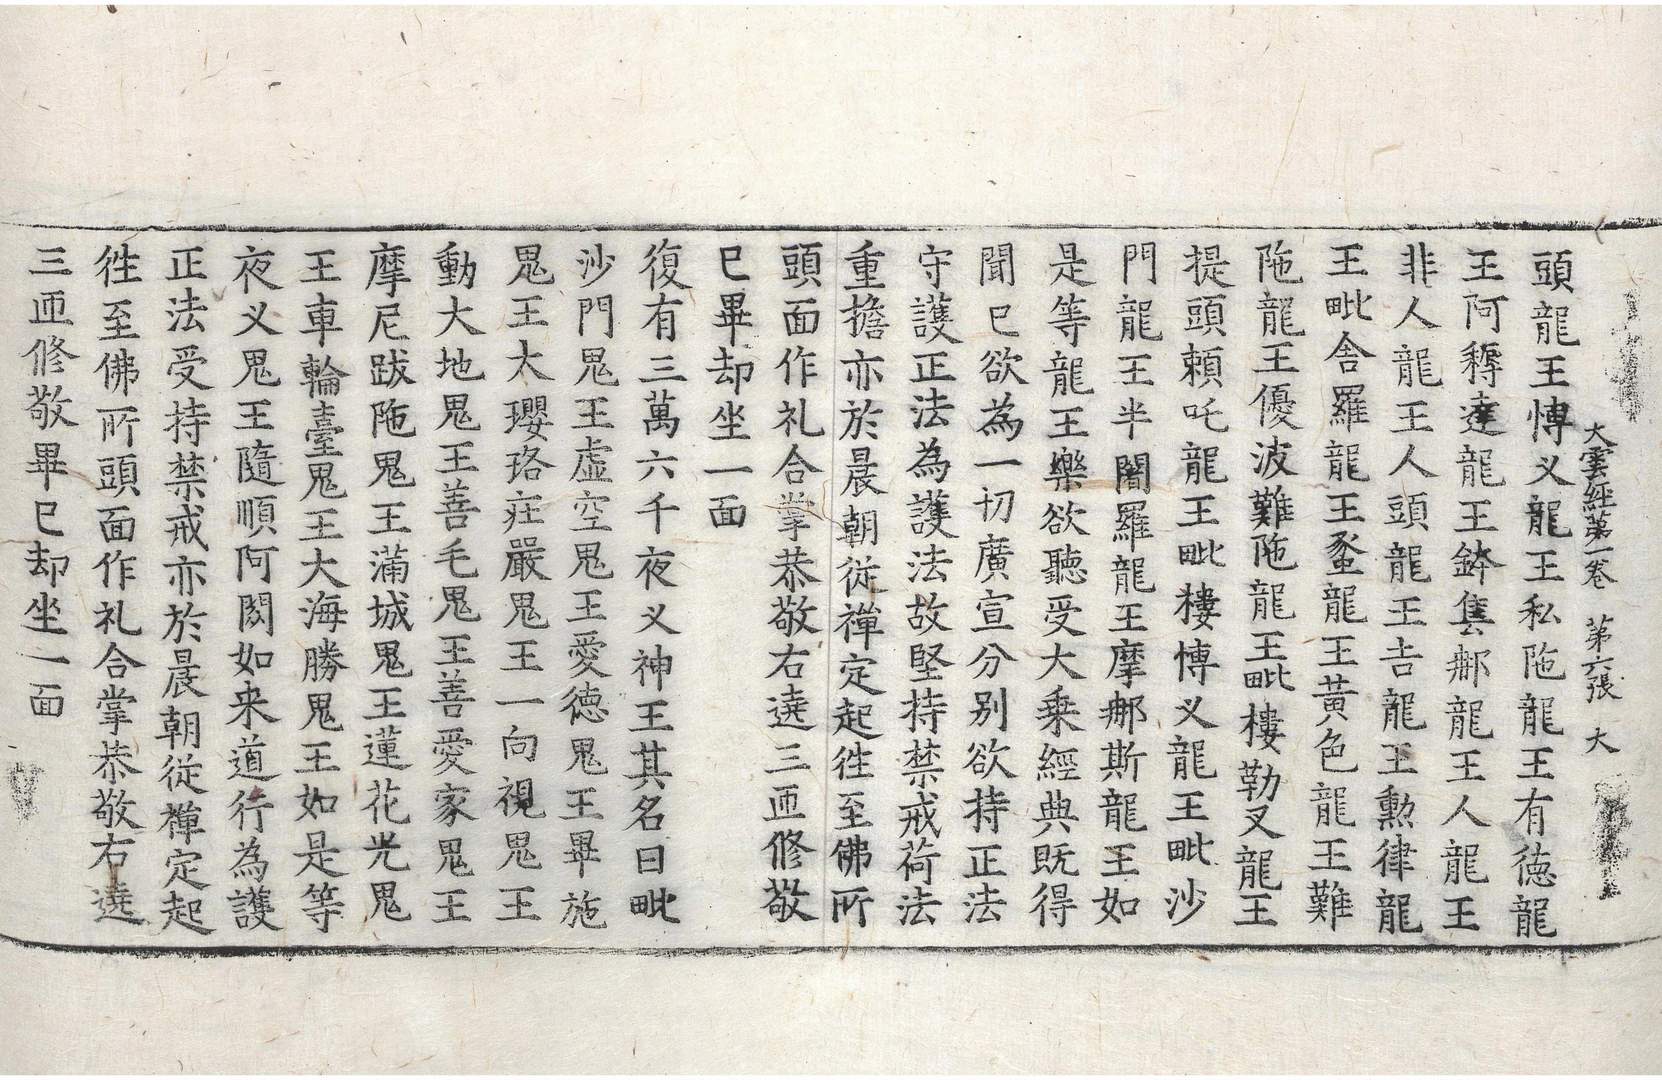 大雲經第一卷 第六張 大
頭龍王愽义龍王私陁龍王有徳龍
王阿耨達龍王鉢隻𨚗龍王人龍王
非人龍王人頭龍王吉龍王勲律龍
王毗舍羅龍王𧊵龍王黃色龍王難
陁龍王優波難陁龍王毗樓勒叉龍王
提頭頼吒龍王毗樓愽义龍王毗沙
門龍王半闍羅龍王摩𨚗斯龍王如
是等龍王樂欲聽受大乗經典既得
聞已欲為一切廣宣分别欲持正法
守護正法為護法故堅持禁戒荷法
重擔亦於晨朝従禪定起徃至佛所
頭面作礼合掌恭敬右遶三匝修敬
已畢却坐一面
復有三萬六千夜义神王其名曰毗
沙門鬼王虛空鬼王愛德鬼王畢施
鬼王大瓔珞莊嚴鬼王一向視鬼王
動大地鬼王善毛鬼王善愛家鬼王
摩尼跋陁鬼王蒲城鬼王蓮花光鬼
王車輪臺鬼王大海勝鬼王如是等
夜义鬼王隨順阿閦如来道行為護
正法受持禁戒亦於晨朝従禪定起
徃至佛所頭面作礼合掌恭敬右遶
三匝修敬畢已却坐一面